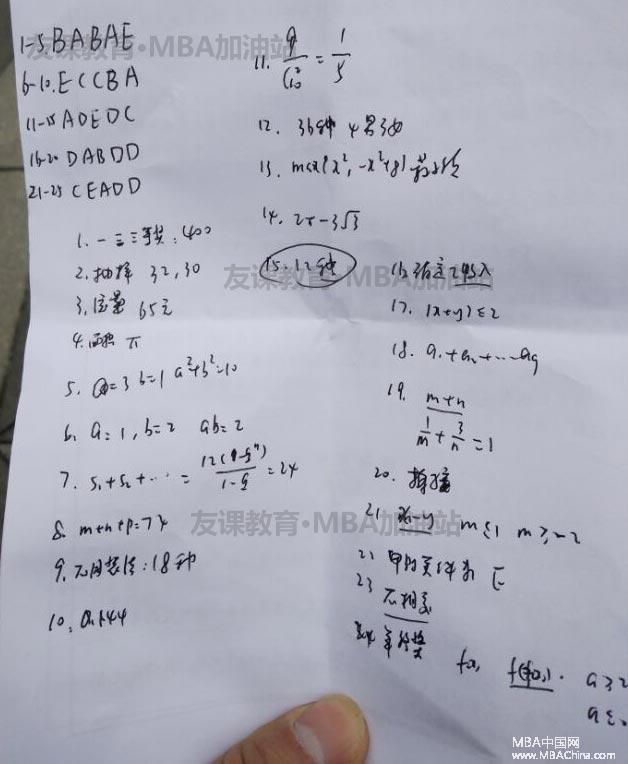 1-5.BABAE
6-10.ECCBA
11-15 ADEDC
16-20 DABDD
21-25 CEADD
1. 一二三等奖:400
2. 抽样 32,30
3. 流量 65元
4. 面积 π
5. a=3 b=1 a²+b²=10
6. a=1,b=2 ab=2
7. S₁+S₂+… = 12(1-qⁿ)/(1-q) =24
8. m+n+p=74
9. 不同装法:18种
10.
11. 9/C²₁₀ = 1/5
12. 36钟 4男3女
13. max{x²,-x²+8}最小值
14. 2π-3√3
15. 12钟
16. 指定2
17. |x+y|≤2
18. a₁+a₂+…a₉
19. m+n
1/m+3/n=1
20.
21. x-y m≤1 m≥-2
22
23 不相
f(x) a≥2
友课教育·MBA加油站
友课教育·MBA加油站
友课教育·MBA加油站
MBA中国网
www.MBAChina.com